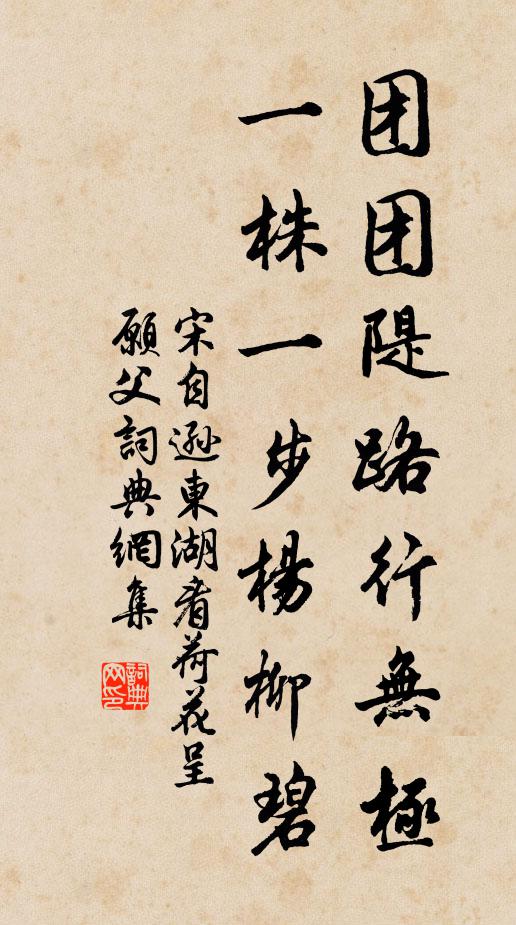 团团隄路行無極
一株一步楊柳碧
宋自遜東湖看荷花呈
願父詞典網集
詞典
网印